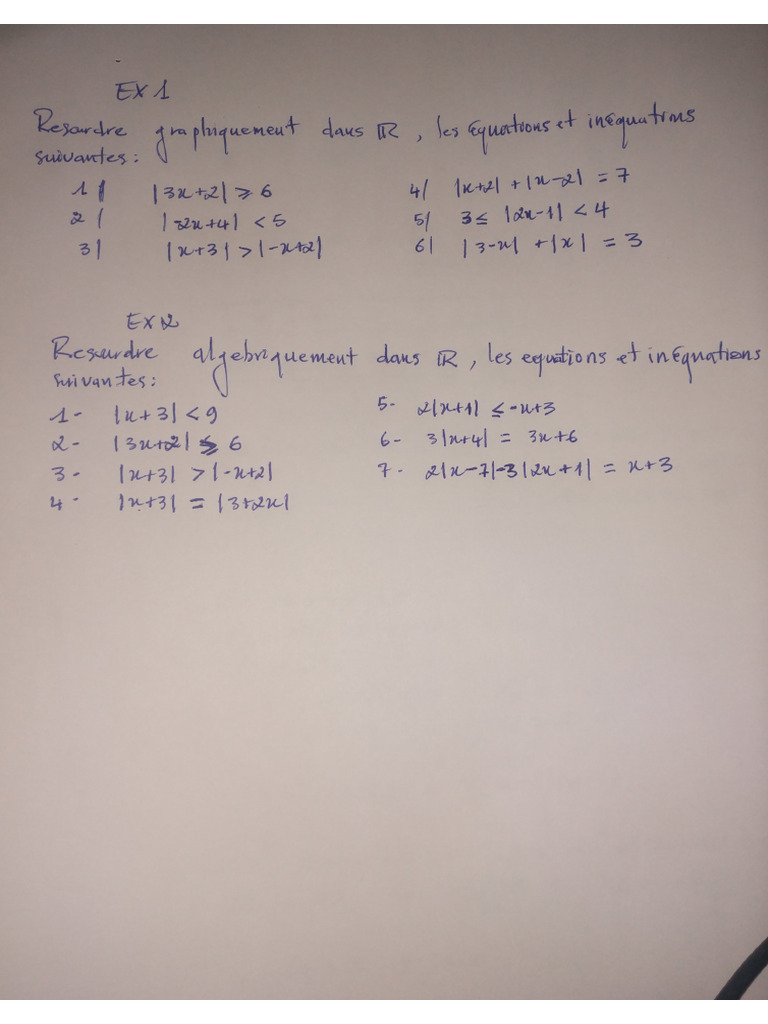 EX 1
Resoudre graphiquement dans ℝ, les équations et inéquations
suivantes :
1| |3x+2| ≥ 6
2| |-2x+4| < 5
3| |x+3| > |-x+2|
4| |x+2| + |x-2| = 7
5| 3 ≤ |2x-1| < 4
6| |3-x| + |x| = 3
EX 2
Resoudre algebriquement dans ℝ, les equations et inéquations
suivantes :
1- |x+3| < 9
2- |3x+2| ≤ 6
3- |x+3| > |-x+2|
4- |x+3| = |3+2x|
5- 2|x+1| ≤ -x+3
6- 3|x+4| = 3x+6
7- 2|x-7|-3|2x+1| = x+3